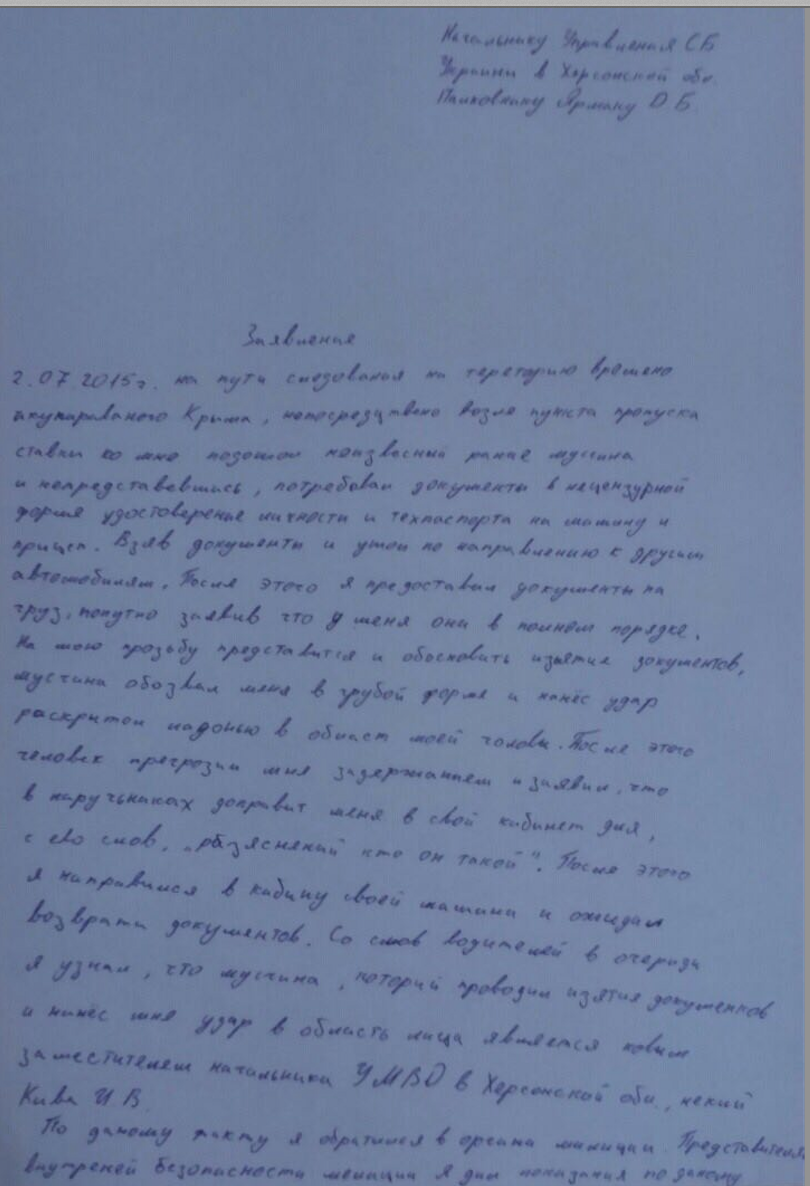 Начальнику Управления СБ
Украини в Херсонской обл.
Полковнику Ярману О Б
Заявление
2.07 2015г. на пути следования на терeторию времено
окупираваного Крыма, непосредствено возле пункта пропуска
ко мне подошол неизвесный ранее мусчина
и непредставевшись, потребовал документы в нецензурной
форме удостоверение личности и техпаспорта на машину и
прицеп. Взяв документы и ушол по направлению к другим
автомобилям. После этого я предоставил документы на
груз, попутно заявив что у меня они в полном порядке.
На мою прозьбу представится и обосновить изятие документов,
мусчина обозвал меня в грубой форме и нанёс удар
раскритой ладонью в област моей головы. После этого
человек пригрозил мне задержанием и заявил, что
в наручьниках доправит меня в свой кабинет для,
с его слов, „разяснений кто он такой". После этого
я направился в кабину своей машини и ожидал
возврата документов. Со слов водителей в очереди
я узнал, что мусчина, который проводил изятия документов
и нанёс мне удар в область лица является новым
заместителем начальника УМВД в Херсонской обл., некий
Кива И В
По даному факту я обратился в органи милиции. Представителям
внутреней безопасности милиции я дал показания по даному